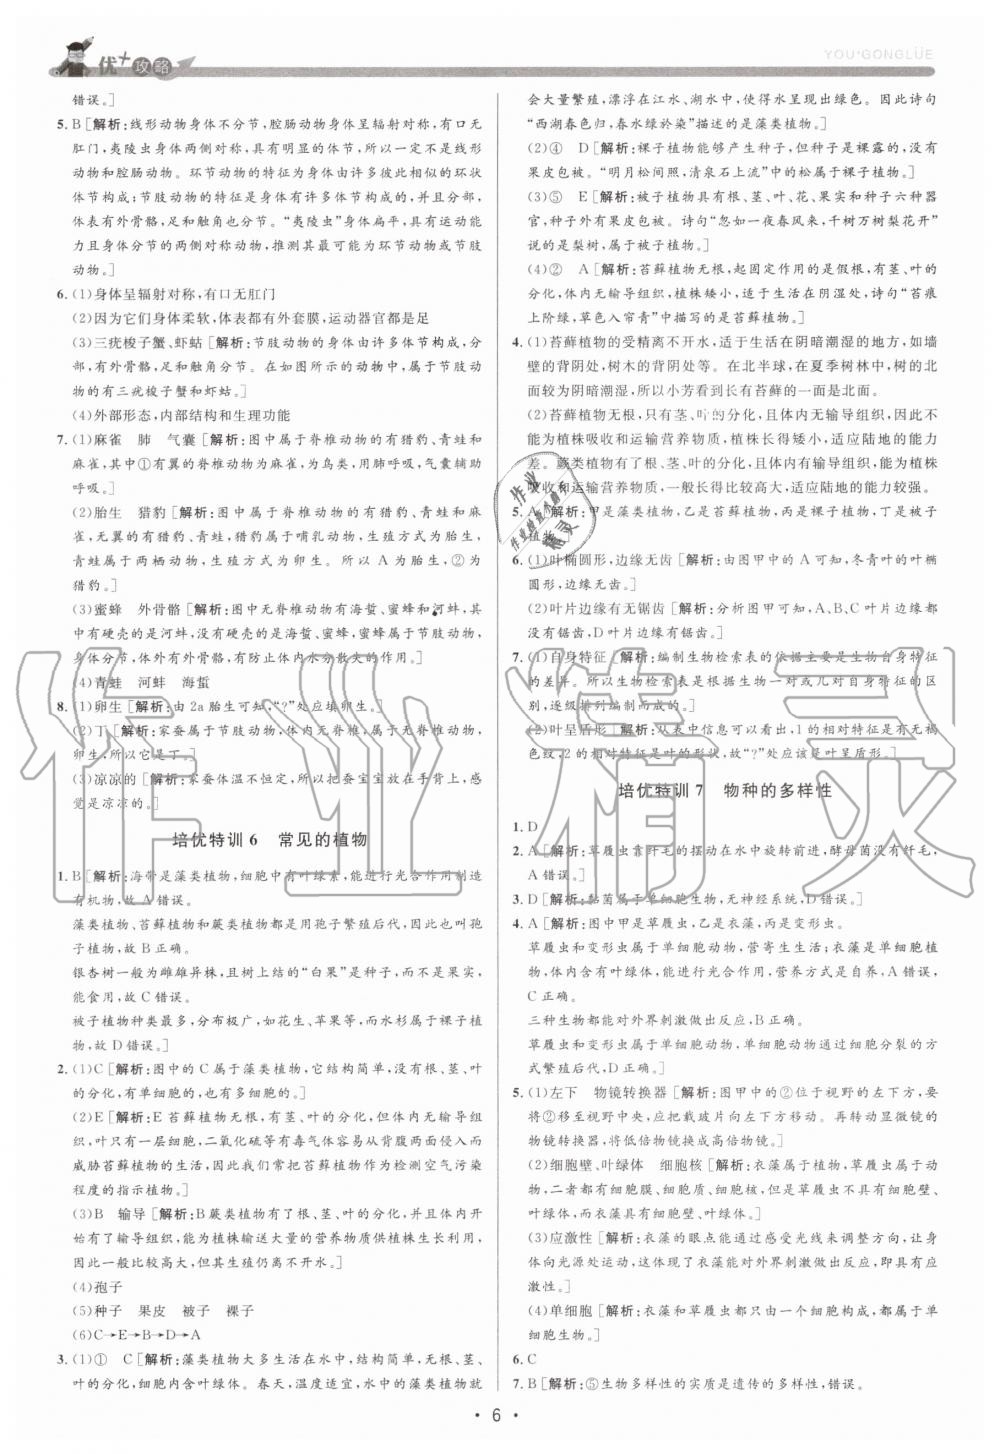 优+攻略
YOU+GONGLÜE
错误。]
5. B [解析:线形动物身体不分节,腔肠动物身体呈辐射对称,有口无
肛门,夷陵虫身体两侧对称,具有明显的体节,所以一定不是线形
动物和腔肠动物。环节动物的特征为身体由许多彼此相似的环状
体节构成;节肢动物的特征是身体由许多体节构成,并且分部,
体表有外骨骼,足和触角也分节。“夷陵虫”身体扁平,具有运动能
力且身体分节的两侧对称动物,推测其最可能为环节动物或节肢
动物。]
6. (1)身体呈辐射对称,有口无肛门
(2)因为它们身体柔软,体表都有外套膜,运动器官都是足
(3)三疣梭子蟹、虾蛄 [解析:节肢动物的身体由许多体节构成,分
部,有外骨骼,足和触角分节。在如图所示的动物中,属于节肢动
物的有三疣梭子蟹和虾蛄。]
(4)外部形态,内部结构和生理功能
7. (1)麻雀 肺 气囊 [解析:图中属于脊椎动物的有猎豹、青蛙和
麻雀,其中①有翼的脊椎动物为麻雀,为鸟类,用肺呼吸,气囊辅助
呼吸。]
(2)胎生 猎豹 [解析:图中属于脊椎动物的有猎豹、青蛙和麻
雀,无翼的有青蛙、猎豹,猎豹属于哺乳动物,生殖方式为胎生,
青蛙属于两栖动物,生殖方式为卵生。所以 A 为胎生,②为
猎豹。]
(3)蜜蜂 外骨骼 [解析:图中无脊椎动物有海蜇、蜜蜂和河蚌,其
中有硬壳的是河蚌,没有硬壳的是海蜇、蜜蜂,蜜蜂属于节肢动物,
身体分节,体外有外骨骼,有防止体内水分散失的作用。]
(4)青蛙 河蚌 海蜇
8. (1)卵生 [解析:由 2a 胎生可知,“?”处应填卵生。]
(2)丁 [解析:家蚕属于节肢动物,体内无脊椎,属于无脊椎动物,
卵生,所以它是丁。]
(3)凉凉的 [解析:家蚕体温不恒定,所以把蚕宝宝放在手背上,感
觉是凉凉的。]
培优特训 6 常见的植物
1. B [解析:海带是藻类植物,细胞中有叶绿素,能进行光合作用制造
有机物,故 A 错误。
藻类植物、苔藓植物和蕨类植物都是用孢子繁殖后代,因此也叫孢
子植物,故 B 正确。
银杏树一般为雌雄异株,且树上结的“白果”是种子,而不是果实,
能食用,故 C 错误。
被子植物种类最多,分布极广,如花生、苹果等,而水杉属于裸子植
物,故 D 错误。]
2. (1)C [解析:图中的 C 属于藻类植物,它结构简单,无根、茎、叶
的分化,有单细胞的,也有多细胞的。]
(2)E [解析:E 苔藓植物无根,有茎、叶的分化,但体内无输导组
织,叶只有一层细胞,二氧化硫等有毒气体容易从背腹两面侵入而
威胁苔藓植物的生活,因此我们常把苔藓植物作为检测空气污染
程度的指示植物。]
(3)B 输导 [解析:B 蕨类植物有了根、茎、叶的分化,并且体内开
始有了输导组织,能为植株输送大量的营养物质供植株生长利用,
因此一般比较高大,但其生殖仍离不开水。]
(4)孢子
(5)种子 果皮 被子 裸子
(6)C→E→B→D→A
3. (1)① C [解析:藻类植物大多生活在水中,结构简单,无根、茎、
叶的分化,细胞里有叶绿体。春天,温度适宜,水中的藻类植物就
会大量繁殖,漂浮在江水、湖水中,使得水呈现出绿色。因此诗句
“西湖春色归,春水绿於染”描述的是藻类植物。]
(2)④ D [解析:裸子植物能够产生种子,但种子是裸露的,没有
果皮包被。“明月松间照,清泉石上流”中的松属于裸子植物。]
(3)⑤ E [解析:被子植物具有根、茎、叶、花、果实和种子六种器
官,种子外有果皮包被。诗句“忽如一夜春风来,千树万树梨花开”
说的是梨树,属于被子植物。]
(4)② A [解析:苔藓植物无根,起固定作用的是假根,有茎、叶的
分化,体内无输导组织,植株矮小,适于生活在阴湿处,诗句“苔痕
上阶绿,草色入帘青”中描写的是苔藓植物。]
4. (1)苔藓植物的受精离不开水,适于生活在阴暗潮湿的地方,如墙
壁的背阴处,树木的背阴处等。在北半球,在夏季树林中,树的北
面较为阴暗潮湿,所以小芳看到长有苔藓的一面是北面。
(2)苔藓植物无根,只有茎、叶的分化,且体内无输导组织,因此不
能为植株吸收和运输营养物质,植株长得矮小,适应陆地的能力
差。蕨类植物有了根、茎、叶的分化,且体内有输导组织,能为植株
吸收和运输营养物质,一般长得比较高大,适应陆地的能力较强。
5. A [解析:甲是藻类植物,乙是苔藓植物,丙是裸子植物,丁是被子
植物。]
6. (1)叶椭圆形,边缘无齿 [解析:由图甲中的 A 可知,冬青叶的叶椭
圆形,边缘无齿。]
(2)叶片边缘有无锯齿 [解析:分析图甲可知,A、B、C 叶片边缘都
没有锯齿,D 叶片边缘有锯齿。]
7. (1)自身特征 [解析:编制生物检索表的依据主要是生物自身特征
的差异。所以生物检索表是根据一定的生物自身特征的区
别,逐级排列编制而成的。]
(2)叶呈盾形 [解析:从表中信息可以看出,1 的相对特征是有无褐
色纹,2 的相对特征是叶的形状,故“?”处应该是叶呈盾形。]
培优特训 7 物种的多样性
1. D
2. A [解析:草履虫靠纤毛的摆动在水中旋转前进,酵母菌没有纤毛,
A 错误。]
3. D [解析:黏菌属于单细胞生物,无神经系统,D 错误。]
4. A [解析:图中甲是草履虫,乙是衣藻,丙是变形虫。
草履虫和变形虫属于单细胞动物,营寄生生活;衣藻是单细胞植
物,体内含有叶绿体,能进行光合作用,营养方式是自养,A 错误,
C 正确。
三种生物都能对外界刺激做出反应,B 正确。
草履虫和变形虫属于单细胞动物,单细胞动物通过细胞分裂的方
式繁殖后代,D 正确。]
5. (1)左下 物镜转换器 [解析:图甲中的②位于视野的左下方,要
将②移至视野中央,应把载玻片向左下方移动。再转动显微镜的
物镜转换器,将低倍物镜换成高倍物镜。]
(2)细胞壁、叶绿体 细胞核 [解析:衣藻属于植物,草履虫属于动
物,二者都有细胞膜、细胞质、细胞核,但是植物细胞具有细胞壁、
叶绿体,而衣藻具有细胞壁、叶绿体。]
(3)应激性 [解析:衣藻的眼点能通过感受光线来调整方向,让身
体向光源处运动,说明衣藻能对外界刺激产生反应,即具有应
激性。]
(4)单细胞 [解析:衣藻和草履虫都只由一个细胞构成,都属于单
细胞生物。]
6. C
7. B [解析:⑤生物多样性的实质是遗传的多样性,错误。
· 6 ·
作业精灵